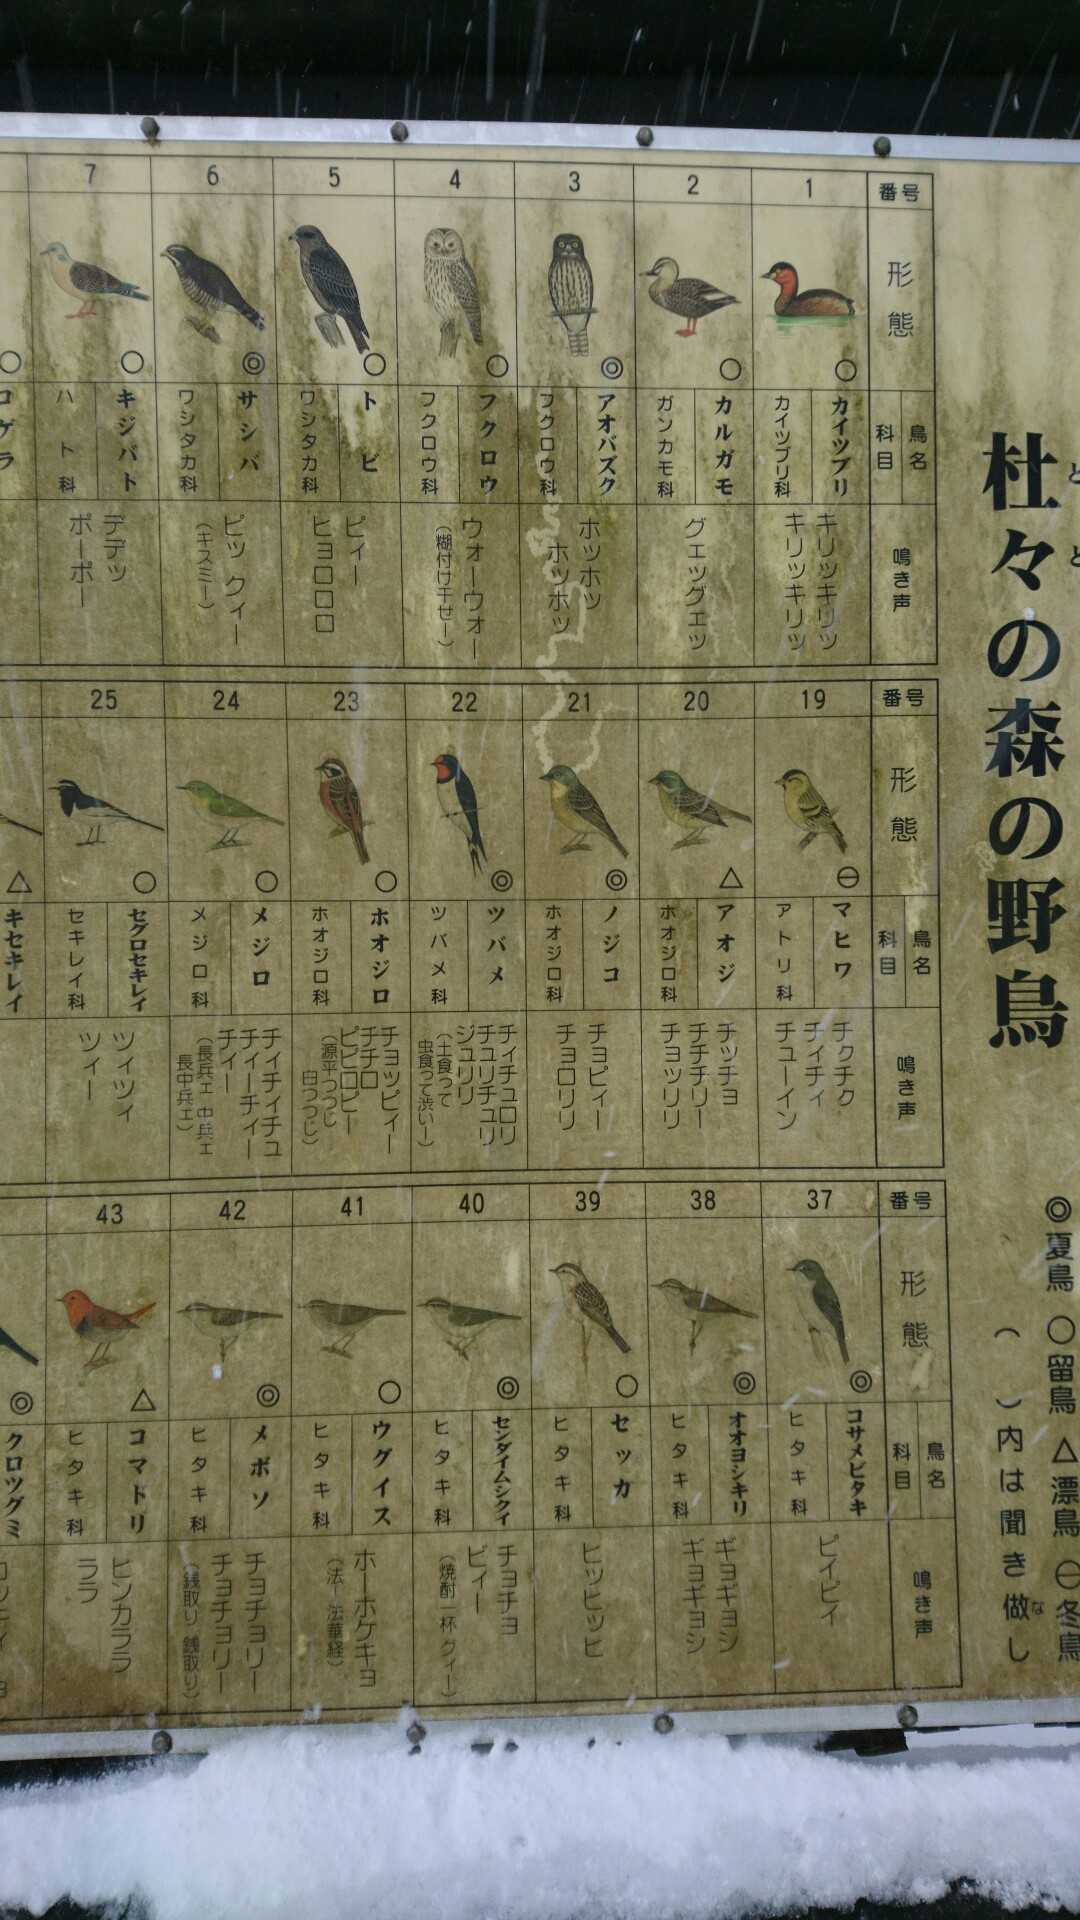 杜々の森の野鳥
とど
◎夏鳥 ○留鳥 △漂鳥 ⊖冬鳥
( )内は聞き做し
な
番号
形態
鳥名
科目
鳴き声
1
○
カイツブリ
カイツブリ科
キリッキリッ
キリッキリッ
2
○
カルガモ
ガンカモ科
グェッグェッ
3
◎
アオバズク
フクロウ科
ホッホッ
ホッホッ
4
○
フクロウ
フクロウ科
ウォーウォー
(糊付け干せー)
5
○
トビ
ワシタカ科
ピィー
ヒョロロロ
6
◎
サシバ
ワシタカ科
ピックィー
(キスミー)
7
○
キジバト
ハト科
デデッ
ポーポー
○
コゲラ
番号
形態
鳥名
科目
鳴き声
19
⊖
マヒワ
アトリ科
チクチク
チィチィ
チューイン
20
△
アオジ
ホオジロ科
チッチョ
チチチリー
チョッリリ
21
◎
ノジコ
ホオジロ科
チョピィー
チョロリリ
22
◎
ツバメ
ツバメ科
チィチュロリ
チュリチュリ
ジュリリ
(土食って
虫食って渋いー)
23
○
ホオジロ
ホオジロ科
チョッピィー
チチロ
ピピロピー
(源平つつじ
白つつじ)
24
○
メジロ
メジロ科
チィチィチュ
チィーチィー
チィー
(長兵ェ 中兵ェ
長中兵ェ)
25
○
セグロセキレイ
セキレイ科
ツィツィ
ツィー
△
キセキレイ
番号
形態
鳥名
科目
鳴き声
37
◎
コサメビタキ
ヒタキ科
ピイピィ
38
◎
オオヨシキリ
ヒタキ科
ギョギョシ
ギョギョシ
39
○
セッカ
ヒタキ科
ヒッヒッヒ
40
◎
センダイムシクイ
ヒタキ科
チョチョ
ビィー
(焼酎一杯グィー)
41
○
ウグイス
ヒタキ科
ホーホケキョ
(法 法華経)
42
◎
メボソ
ヒタキ科
チョチョリー
チョチョリー
(銭取り 銭取り)
43
△
コマドリ
ヒタキ科
ヒンカララ
ララ
◎
クロツグミ